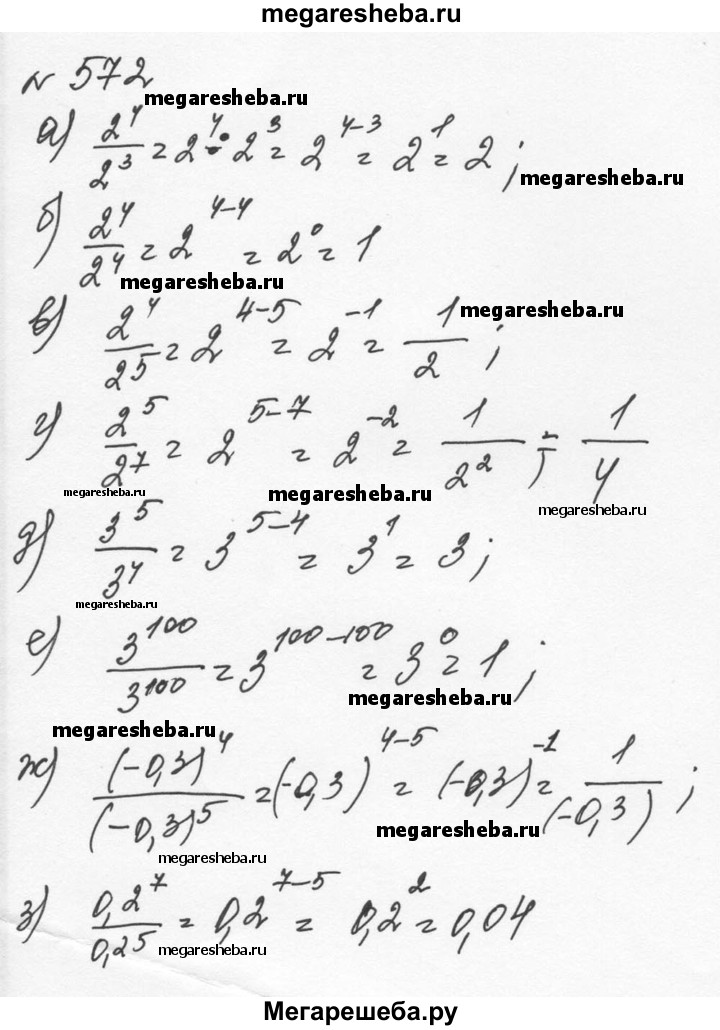 megaresheba.ru
№ 572
megaresheba.ru
а) 2⁴/2³ = 2⁴ : 2³ = 2⁴⁻³ = 2¹ = 2;
megaresheba.ru
б) 2⁴/2⁴ = 2⁴⁻⁴ = 2⁰ = 1
megaresheba.ru
megaresheba.ru
в) 2⁴/2⁵ = 2⁴⁻⁵ = 2⁻¹ = 1/2;
г) 2⁵/2⁷ = 2⁵⁻⁷ = 2⁻² = 1/2²; = 1/4
megaresheba.ru
megaresheba.ru
megaresheba.ru
д) 3⁵/3⁴ = 3⁵⁻⁴ = 3¹ = 3;
megaresheba.ru
megaresheba.ru
е) 3¹⁰⁰/3¹⁰⁰ = 3¹⁰⁰⁻¹⁰⁰ = 3⁰ = 1;
megaresheba.ru
megaresheba.ru
ж) (-0,3)⁴/(-0,3)⁵ = (-0,3)⁴⁻⁵ = (-0,3)⁻¹ = 1/(-0,3);
megaresheba.ru
megaresheba.ru
з) 0,2⁷/0,2⁵ = 0,2⁷⁻⁵ = 0,2² = 0,04
megaresheba.ru
Мегарешеба.ру